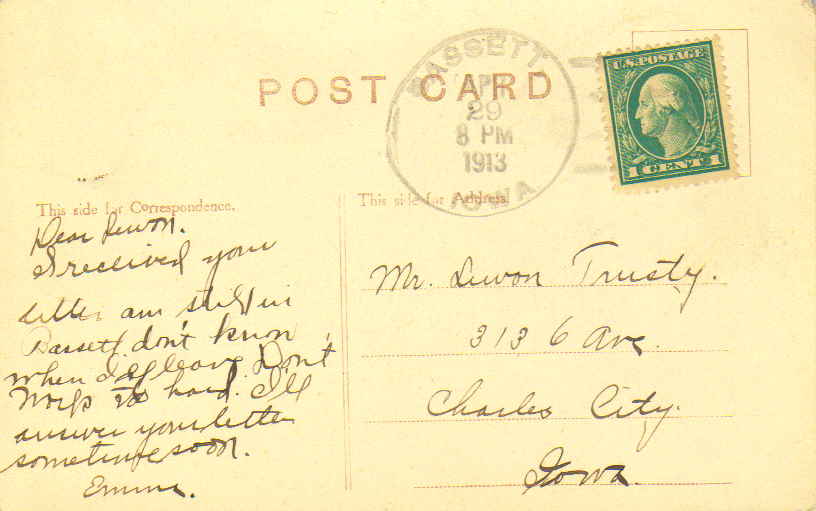 POST CARD
BASSETT
APR
29
8 PM
1913
IOWA
U.S. POSTAGE
1 CENT 1
This side for Correspondence.
This side for Address.
Dear Lewon.
I received your
letter am still in
Bassett. don't know
when I'll leave. Don't
Work to hard. I'll
answer your letter
sometime soon.
Emma.
Mr. Lewon Trusty.
313 6 Ave.
Charles City.
Iowa.